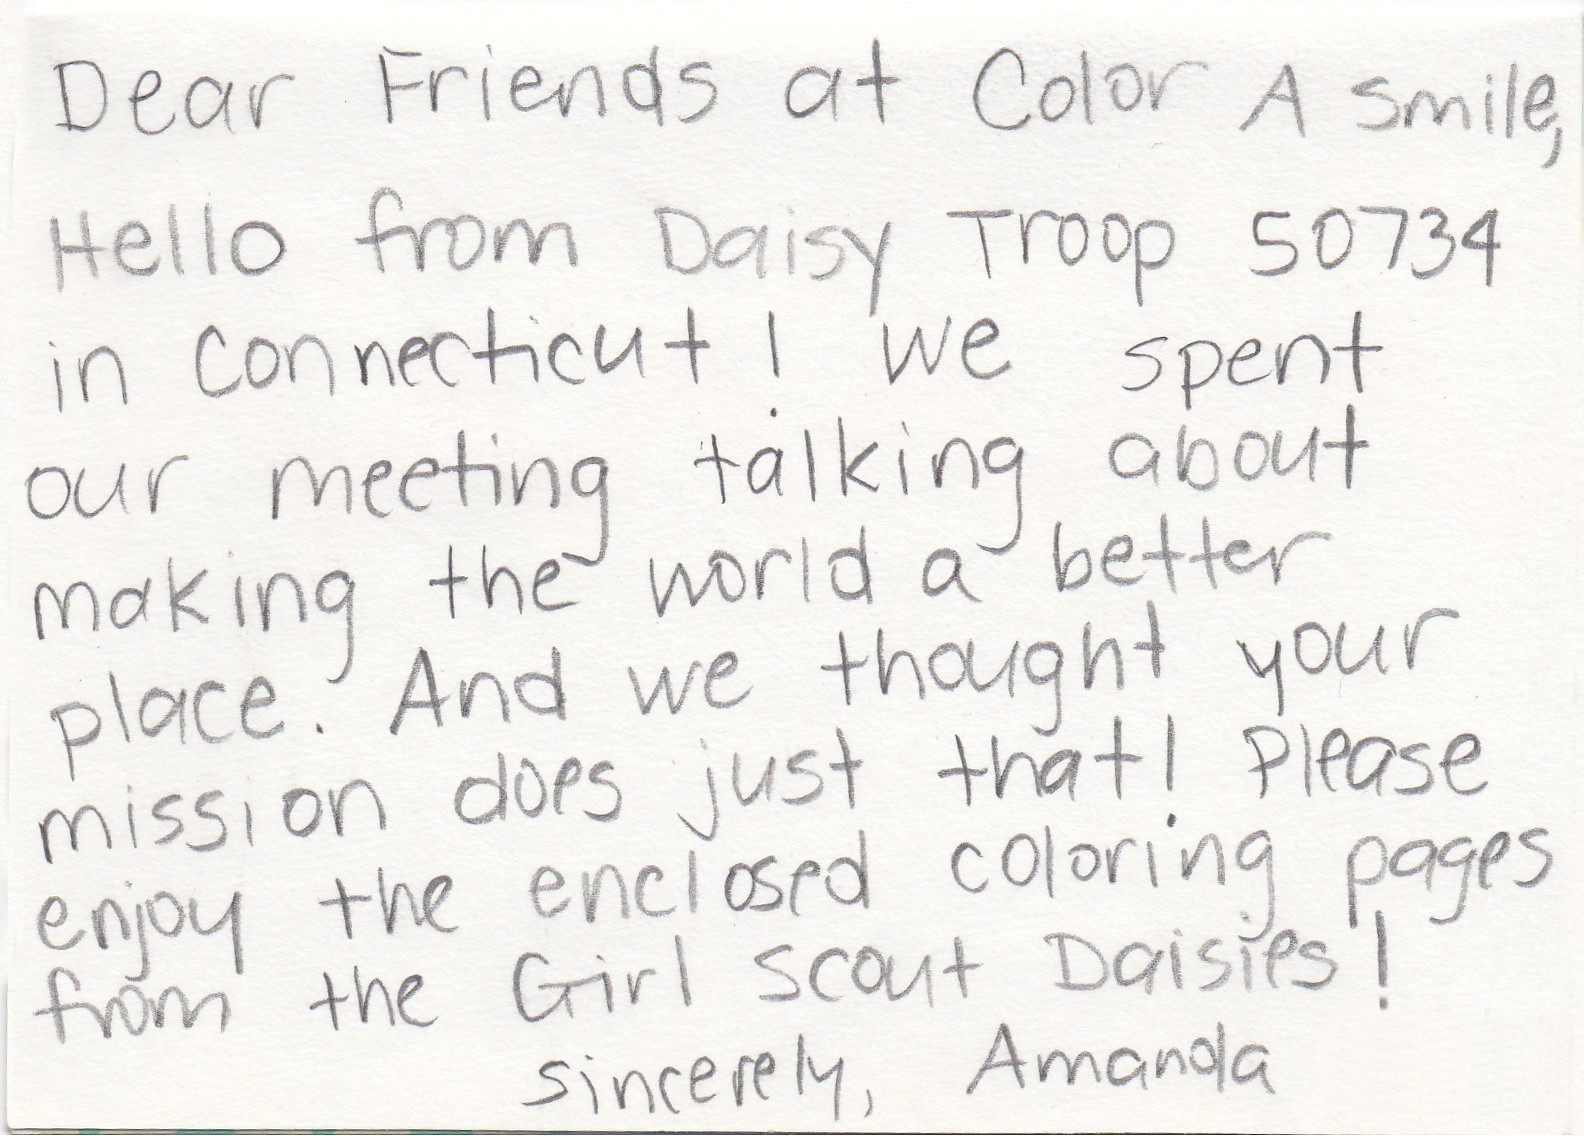 Dear Friends at Color A Smile,
Hello from Daisy Troop 50734
in Connecticut! We spent
our meeting talking about
making the world a better
place. And we thought your
mission does just that! Please
enjoy the enclosed coloring pages
from the Girl Scout Daisies!
sincerely, Amanda